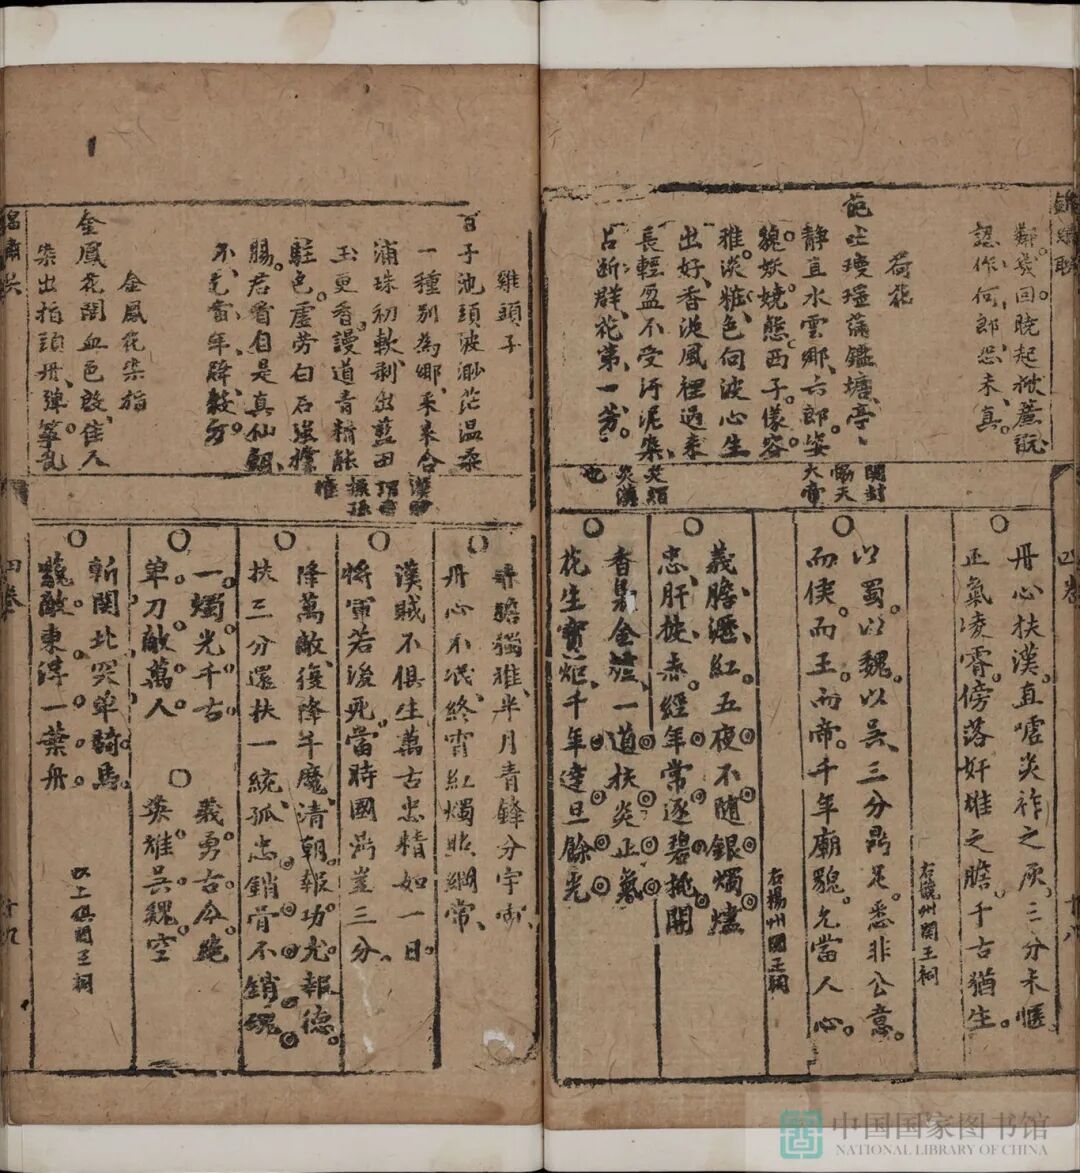 鄰幾回曉起揿蔗䚐
認作何郎恐未真
荷花
靜直水雲鄉六郎姿
貌妖嬈態西子儀容
雅淡粧色向波心生
出好香浥風裡過來
長輕盈不受汙泥染
占斷群花第一芳
雞頭子
百子池頭波渺茫溫柔
一種別為鄉采來合
浦珠初軟剥出藍田
玉更香謾道青精能
駐色虛勞白石強撐
腸君看自是真仙
金鳳花染指
金鳳花開血色啟佳人
染出指頭丹彈箏乱
開封
大帝
炎漢
丹心扶漢直噓炎祚之灰三分未愜
正氣凌霄傍落奸雄之膽千古猶生
右饒州関王祠
以蜀以魏以吳三分鼎足悉非公意
而侯而王而帝千年廟貌允當人心
右揚州関王祠
義膽瀝紅五夜不隨銀燭燼
忠肝挺赤經年常逐碧桃開
香梟金篆一道扶炎正氣
花生寶炬千年達旦餘光
膽獨雄半月青鋒分宇宙
丹心不泯終宵紅燭照綱常
漢賊不俱生萬古忠精如一日
將軍若後死當時國鼎豈三分
降萬敵復降千魔清朝報功尤報德
扶三分還扶一統孤忠銷骨不銷魂
一燭光千古
單刀敵萬人
義勇古今絶
英雄吳魏空
斬関北突单騎馬
東浮一葉舟
以上俱関王祠
四卷
十八
四卷
十九
中国国家图书馆
NATIONAL LIBRARY OF CHINA